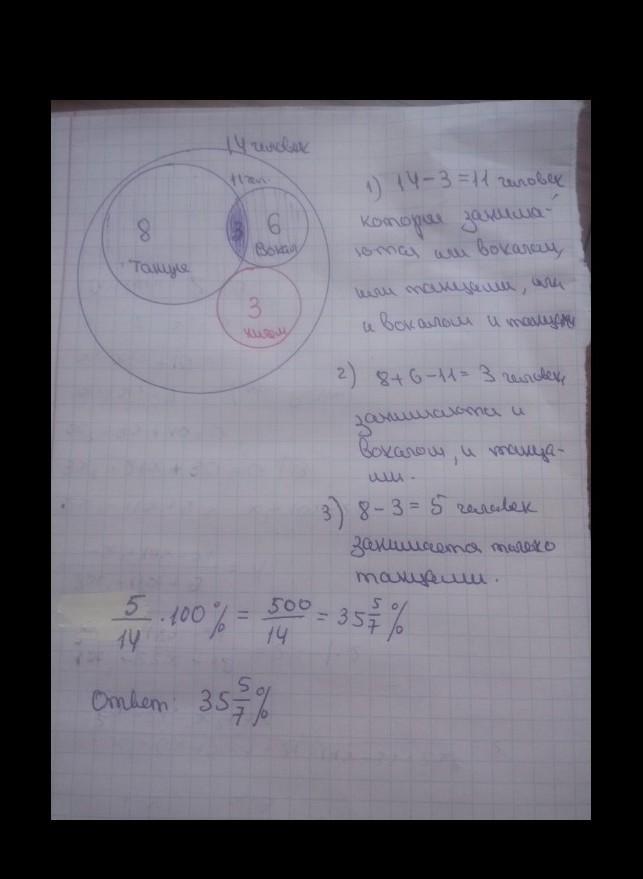 14 человек
11 чел.
8
3
6
Танцы
Вокал
3
1) 14-3=11 человек
которые занима-
ются или вокалом,
или танцами, или
и вокалом и танцами
2) 8+6-11= 3 человек,
занимаются и
вокалом, и танца-
ми.
3) 8-3=5 человек
занимается только
танцами.
5/14 · 100% = 500/14 = 35 5/7 %
Ответ: 35 5/7 %